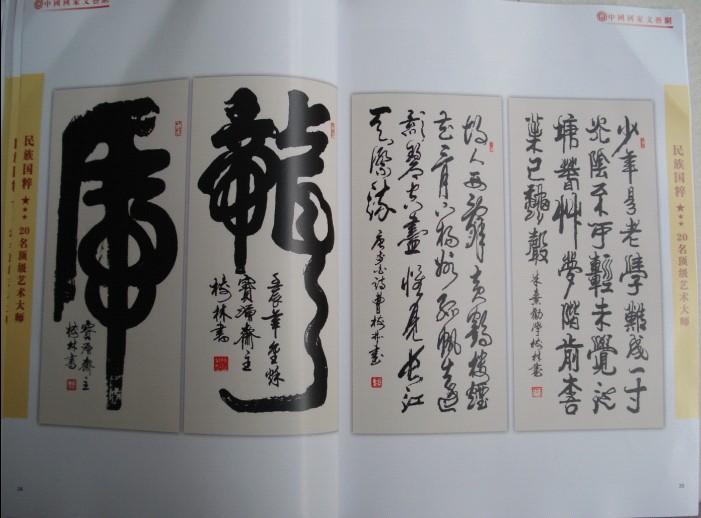 中國國家文藝網
中國國家文藝網
民族国粹 ★★★ 20名顶级艺术大师
虎
齋主
校林書
龍
壬辰年金秋
齋主
校林書
故人西辭黃鶴樓煙
花三月下揚州孤帆遠
影碧空盡惟見長江
天際流 唐李白詩曹校林書
少年易老學難成一寸
光陰不可輕未覺池
塘春艸夢階前梧
葉已秋聲 朱熹勸學校林書
民族国粹 ★★★ 20名顶级艺术大师